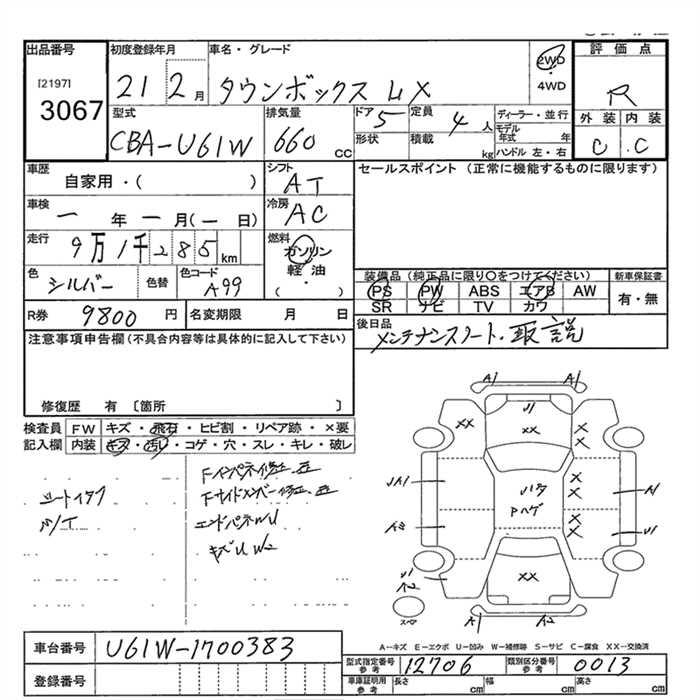 出品番号
[2197]
3067
初度登録年月
21 2月
車名・グレード
タウンボックス LX
2WD
4WD
評価点
R
型式
CBA-U61W
排気量
660 cc
ドア
5
形状
定員
4人
積載
kg
ディーラー・並行
モデル年式 年
ハンドル 左・右
外装 内装
C C
車歴
自家用・( )
シフト
AT
車検
一年一月(一日)
冷房
AC
走行
9万1千285km
燃料
ガソリン
軽油
( ・ )
色
シルバー
色替
色コード
A99
セールスポイント (正常に機能するものに限ります)
装備品 (純正品に限り○をつけてください)
新車保証書
PS PW ABS エアB AW
有・無
SR ナビ TV カワ
R券
9800円
名変期限 月 日
後日品
メンテナンスノート・取説
注意事項申告欄(不具合内容等は具体的に記入して下さい)
修復歴 有 〔箇所 〕
検査員記入欄
FW キズ・飛石・ヒビ割・リペア跡・×要
内装 キズ・汚れ・コゲ・穴・スレ・キレ・破レ
シートイタク
エンドパネWU
キズU W2
A1 A1
U1
XX XX
X
X
A1
U1
XX
A2
A1 A2
スペア
A−キズ E−エクボ U−凹み W−補修跡 S−サビ C−腐食 XX−交換済
車台番号
U61W-1700383
型式指定番号 参考
12706
類別区分番号 参考
0013
登録番号
車庫証明用 参考
長さ cm
幅 cm
高さ cm